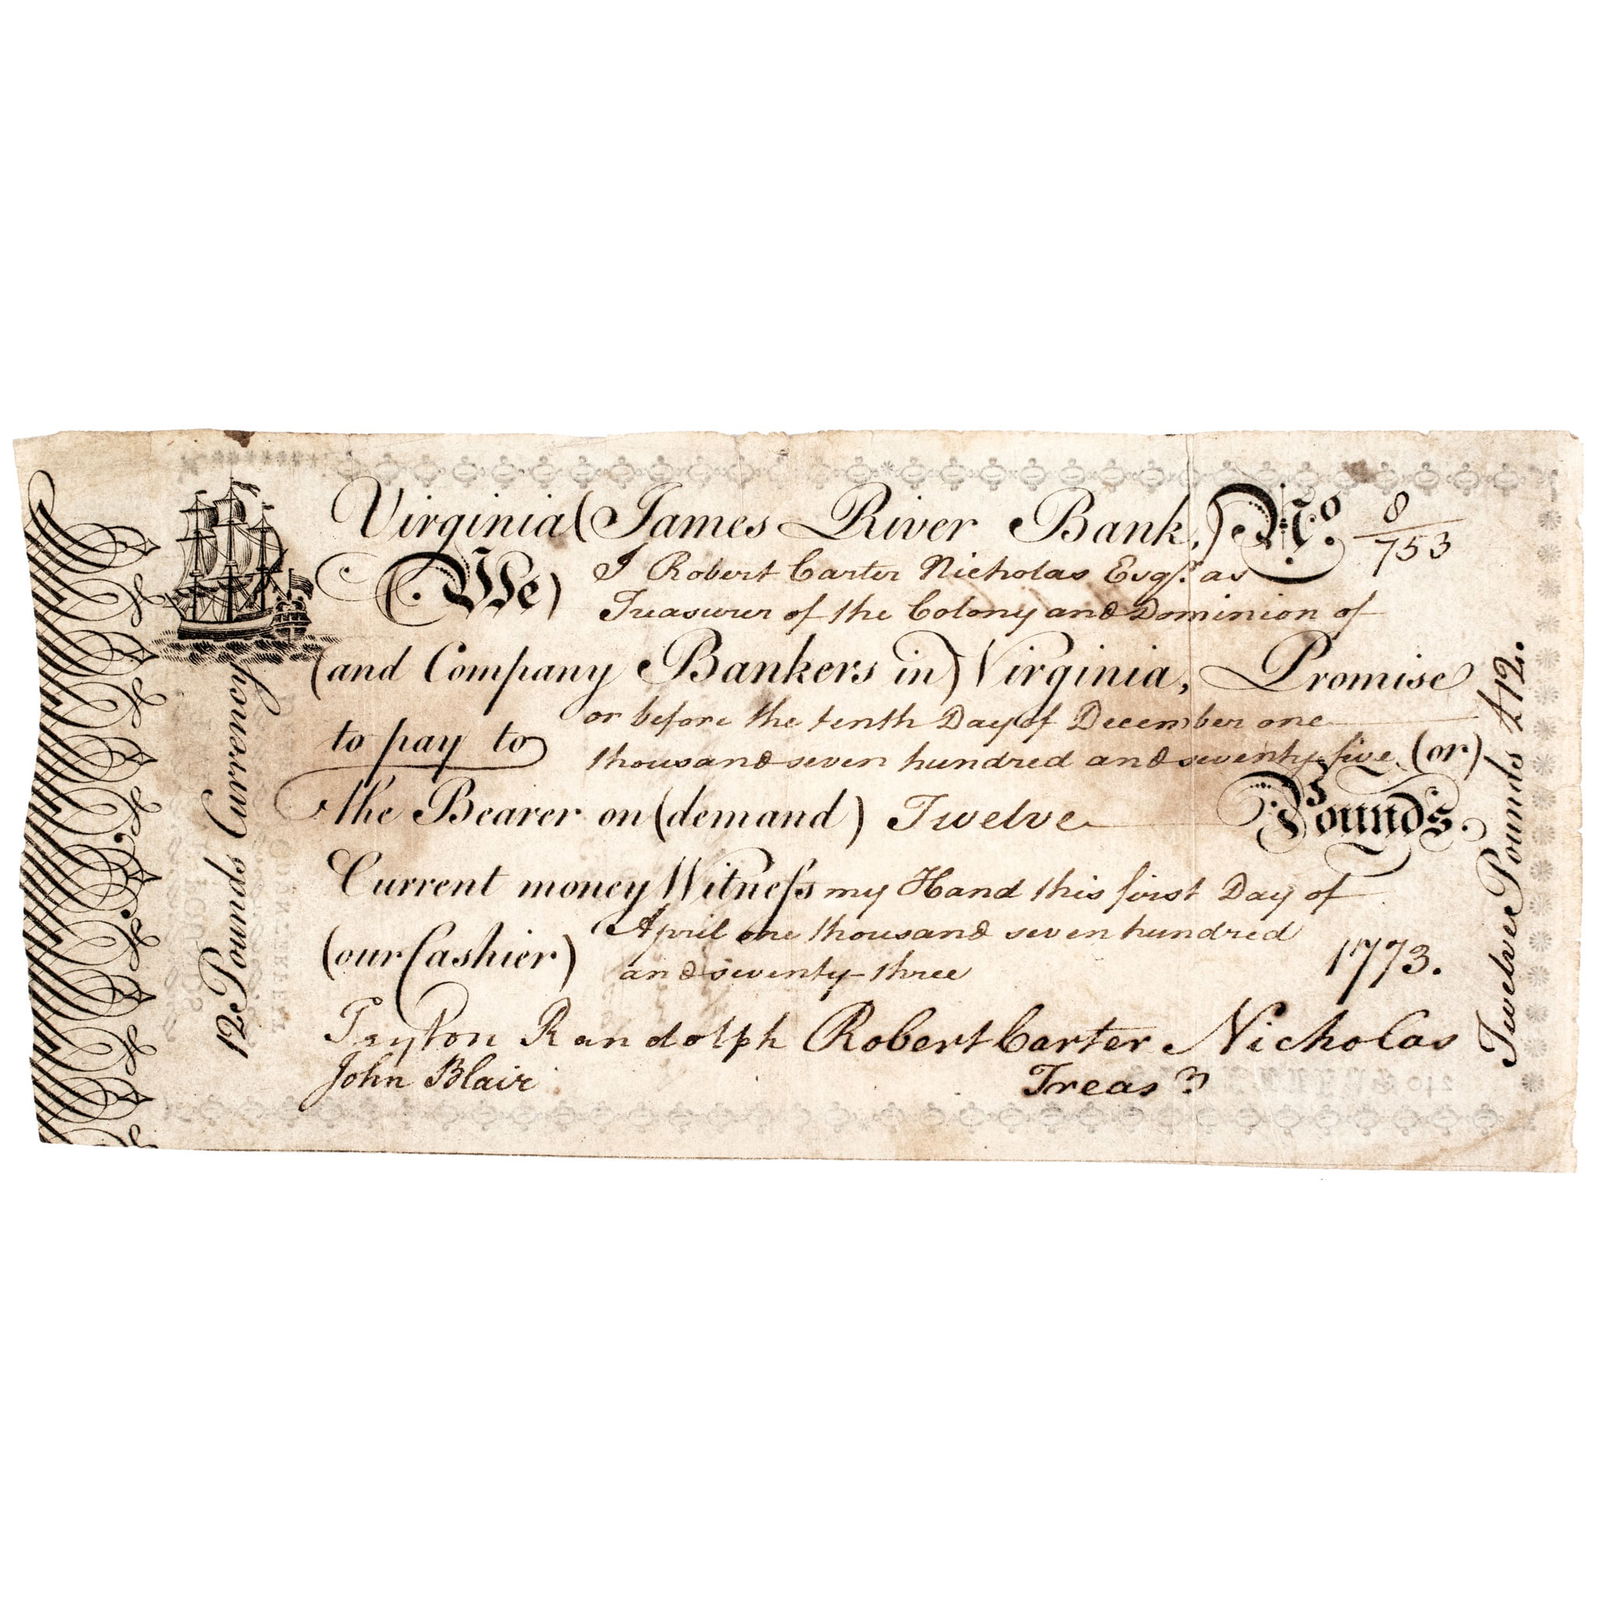 Virginia (James River Bank,) No. 8/753
(We) I Robert Carter Nicholas Esqr. as
Treasurer of the Colony and Dominion of
(and Company Bankers in) Virginia, Promise
to pay to or before the tenth Day of December one
thousand seven hundred and seventy five (or)
the Bearer on (demand) Twelve Pounds.
Current money Witneſs my Hand this first Day of
April one thousand seven hundred
(our Cashier) and seventy three 1773.
Peyton Randolph Robert Carter Nicholas
John Blair Treasr
12 Pounds Currency
Twelve Pounds £12.